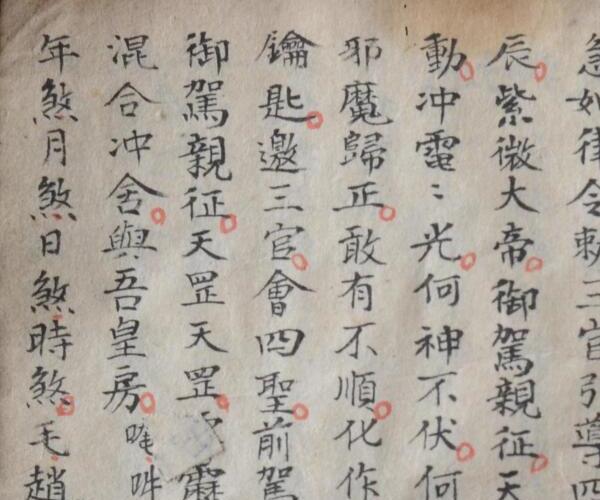 急如律令勅三官引導四
辰紫微大帝御駕親征天
動冲電：光何神不伏何
邪魔歸正敢有不順化作
鑰匙邀三官會四聖前駕
御駕親征天罡天罡霹
混合冲舍與吾皇房唵吽
年煞月煞日煞時煞毛趙